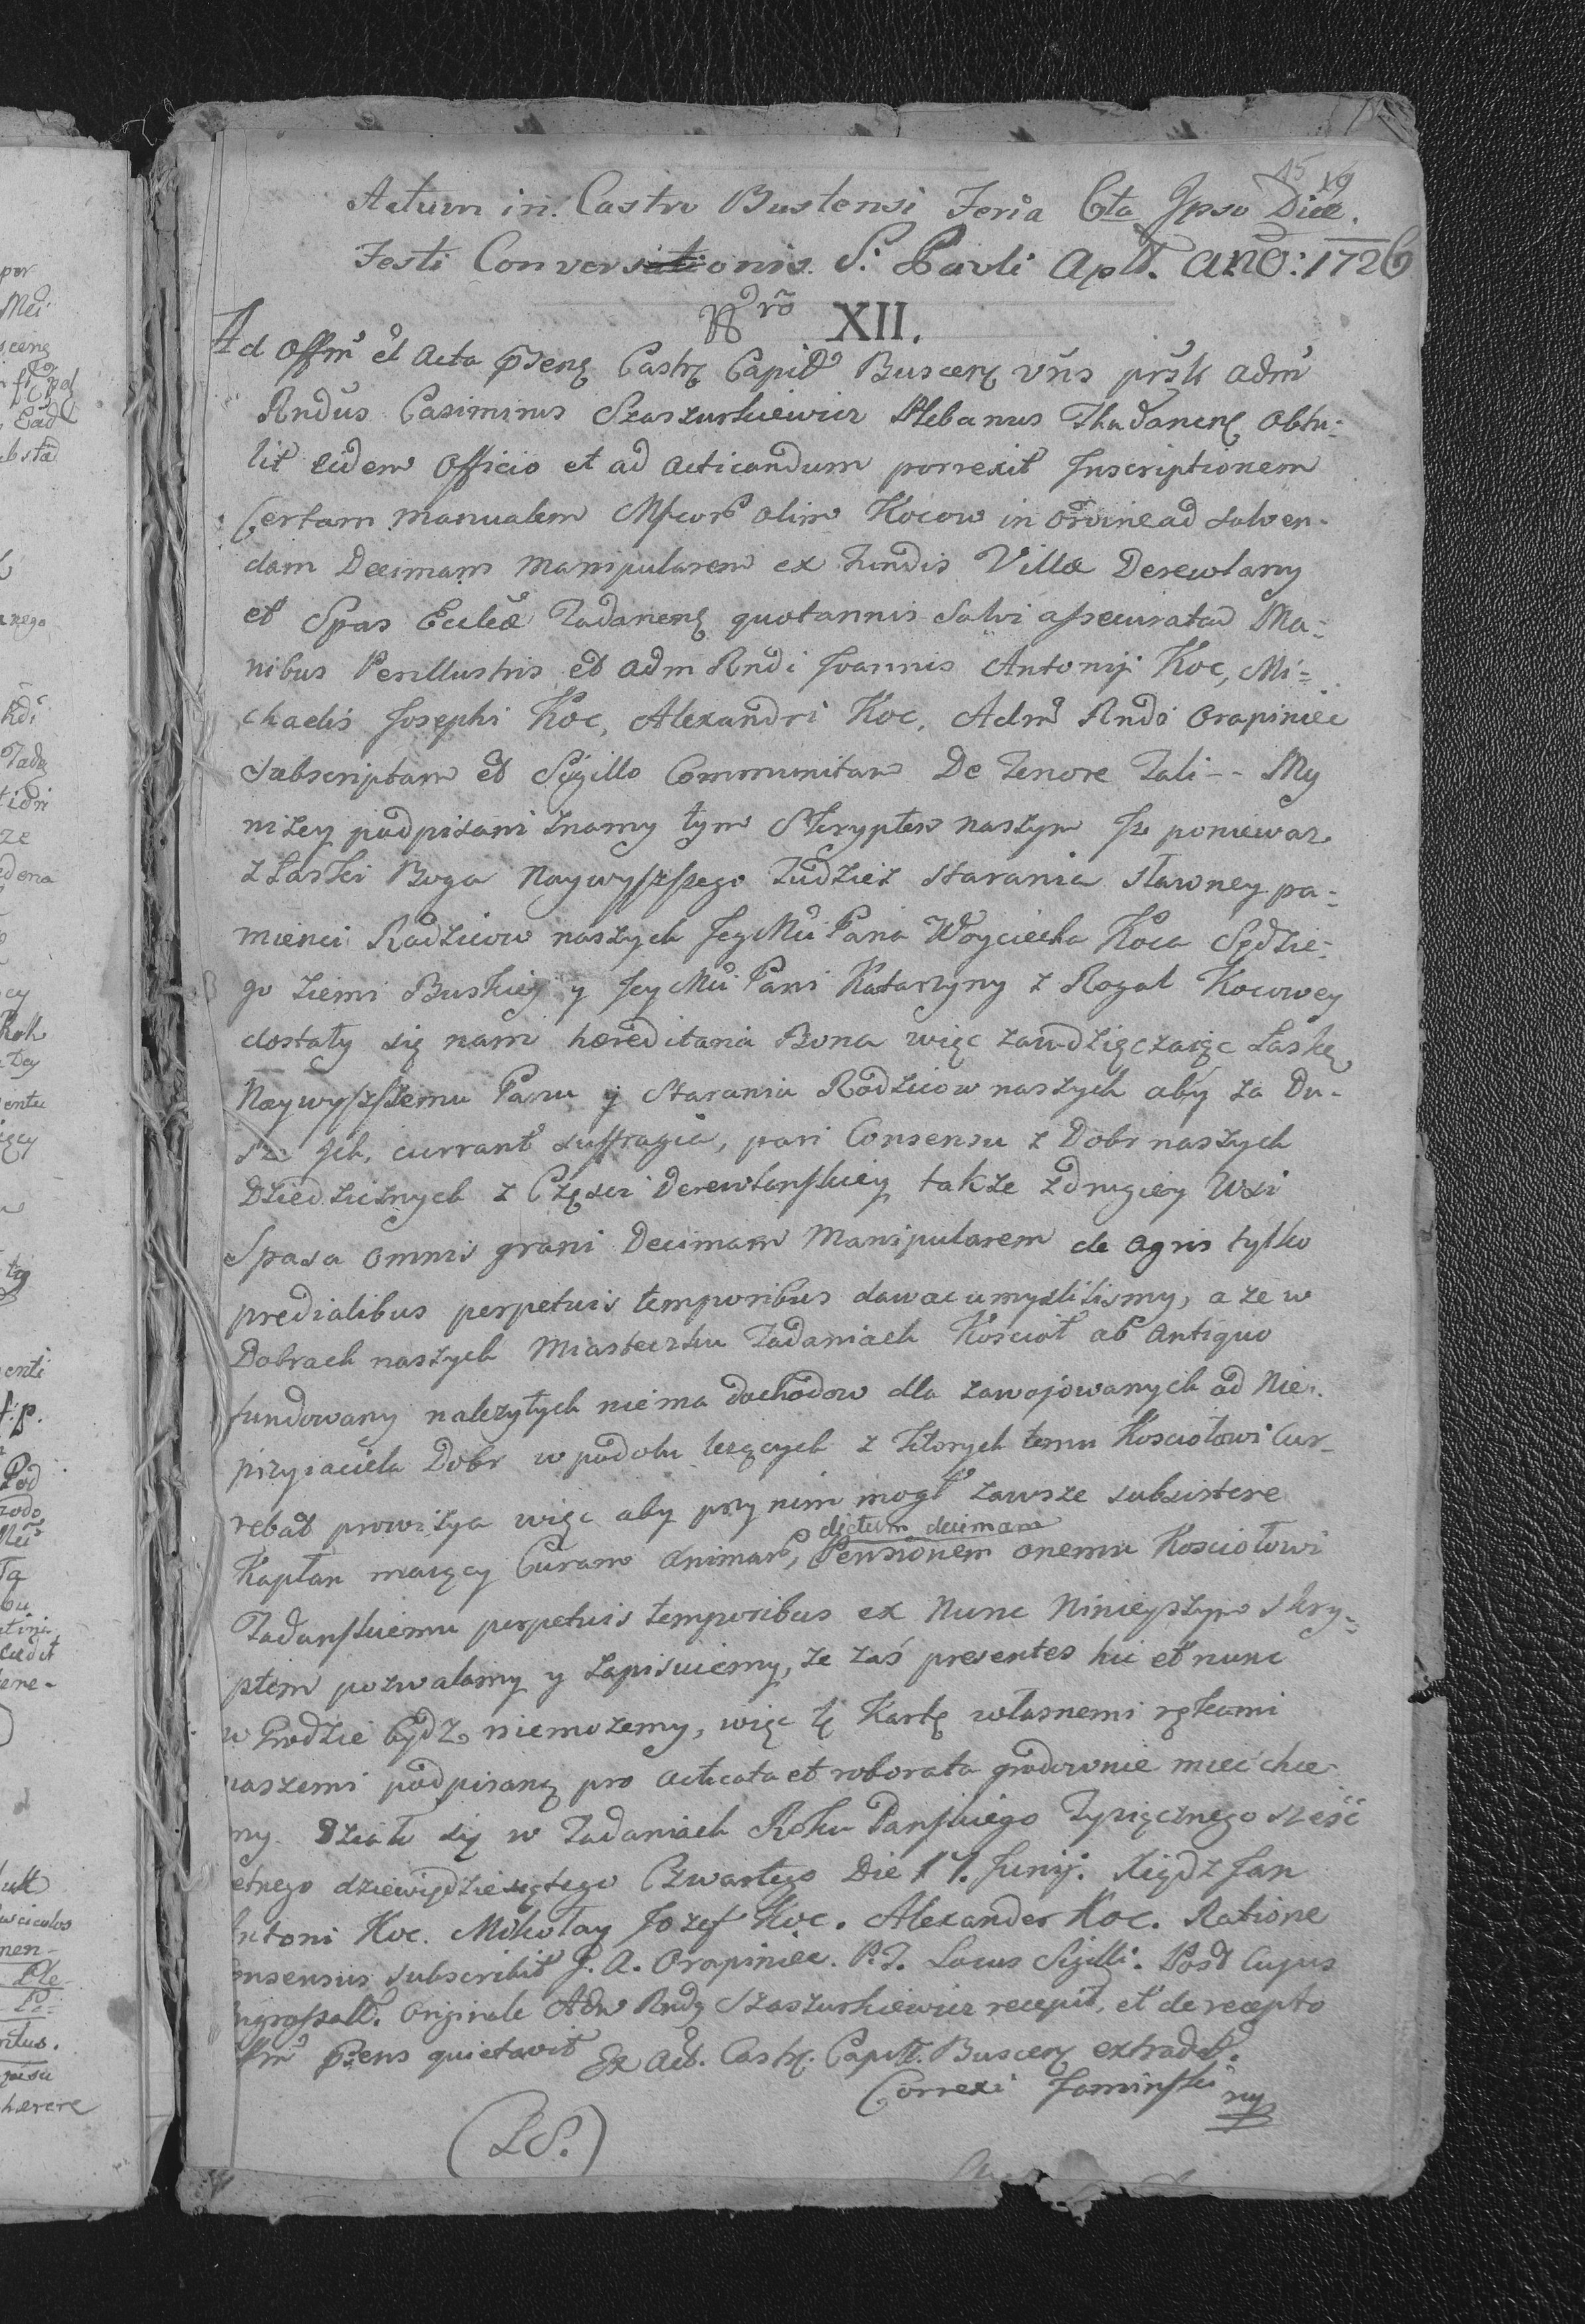 15
Actum in Castro Bustensi Feria 6ta Ipso Die
Festi Conversationis S: Pauli Aplt. Ano: 1726
Nro XII.
Ad Offm et Acta Psenę Castrę Capitl Buscenę vns prsk adm
Rndus Casimirus Szaszurkiewicz Plebanus Thadanenę Obtu=
lit eidem Officio et ad acticandum porrexit Inscriptionem
Certam manualem Mfcorę olim Kocow in ordine ad solven-
dam Decimam Manipularem ex Fundis Villæ Derewlany
et Spas Eccleæ Tadanenę quotannis Salvi assecuratam Ma=
nibus Perillustris et Adm Rndi Joannis Antonij Koc, Mi=
chaelis Josephi Koc, Alexandri Koc, Adm Rndi Orapiniec
subscriptam et Sigillo Communitam De Tenore Tali-- My
niżey podpisani znamy tym Skryptem naszym Iż poniewaz
z Łaski Boga Naywyszszego Tudzież starania sławney pa=
mienci Rodzicow naszych JegMci Pana Woyciecha Koca Sędzie=
go Ziemi Buskiey y Jey Mci Pani Katarzyny z Rogal Kocowey
dostały się nam hæreditaria Bona więc zawdzięczaiąc Łaskę
Naywyszszemu Panu y Starania Rodzicow naszych aby za Du-
sze Jch, currant suffragia, pari Consensu z Dobr naszych
Dziedzicznych z Części Derewlańskiey także z drugiey Wsi
Spasa omnis grani Decimam Manipularem de agris tylko
predialibus perpetuis temporibus dawac umyslilismy, a ze w
Dobrach naszych Miasteczku Tadaniach Kościoł ab Antiquo
fundowany nalezytych niema dochodow dla zawojowanych od Nie-
przyiaciela Dobr w podolu lezęcych z Ktorych temu Kosciołowi Cur-
rebat prowizya więc aby przy nim mogł zawsze subsistere
dictum decimam
Kapłan maiący Curam Animarę, Pensionem onemu Kosciołowi
Tadanskiemu perpetuis temporibus ex Nunc Ninieyszym skry=
ptem pozwalamy y zapisuiemy, że zaś presentes hic et nunc
w Grodzie bydz niemozemy, więc tę Kartę własnemi rękami
naszemi podpisaną pro acticata et roborata grodownie mieć chce-
my. Działo się w Tadaniach Roku Pańskiego Tysięcznego sześć
etnego dziewiędziesiątego Czwartego Die 17. Junij. Xiądz Jan
Antoni Koc. Mikołay Jozef Koc. Alexander Koc. Ratione
Consensus subscribit J. A. Orapiniec. P. T. Locus Sigilli. Post Cujus
Ingrossatt. Originale Adm Rndę Szaszurkiewicz recepit, et de recepto
Offm Psens quietavit Ex Act. Castrę. Capitt. Buscenę extradit.
Correxi Jaminski mp
(LS.)